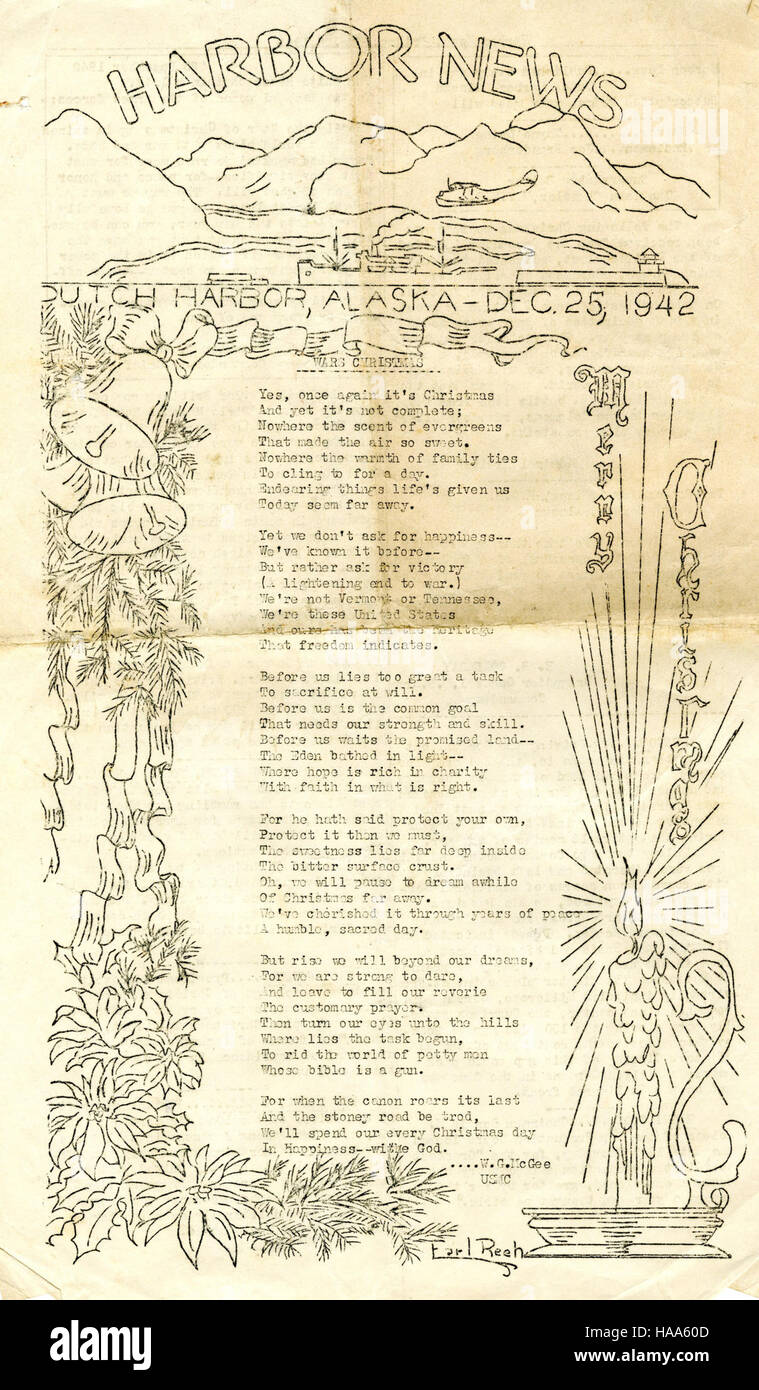 HARBOR NEWS
DUTCH HARBOR, ALASKA - DEC. 25, 1942
WARS CHRISTMAS
Yes, once again it's Christmas
And yet it's not complete;
Nowhere the scent of evergreens
That made the air so sweet.
Nowhere the warmth of family ties
To cling to for a day.
Endearing things life's given us
Today seem far away.
Yet we don't ask for happiness--
We've known it before--
But rather ask for victory
(A lightening end to war.)
We're not Vermont or Tennessee,
We're these United States
And ours has been the heritage
That freedom indicates.
Before us lies too great a task
To sacrifice at will.
Before us is the common goal
That needs our strength and skill.
Before us waits the promised land--
The Eden bathed in light--
Where hope is rich in charity
With faith in what is right.
For he hath said protect your own,
Protect it then we must,
The sweetness lies far deep inside
The bitter surface crust.
Oh, we will pause to dream awhile
Of Christmas far away.
We've cherished it through years of peace
A humble, sacred day.
But rise we will beyond our dreams,
For we are strong to dare,
And leave to fill our reverie
The customary prayer.
Then turn our eyes unto the hills
Where lies the task begun,
To rid the world of petty men
Whose bible is a gun.
For when the canon roars its last
And the stoney road be trod,
We'll spend our every Christmas day
In Happiness--with God.
....W.G.McGee
USMC
Merry
Christmas
Earl Reeh
alamy
Image ID: HAA60D
www.alamy.com